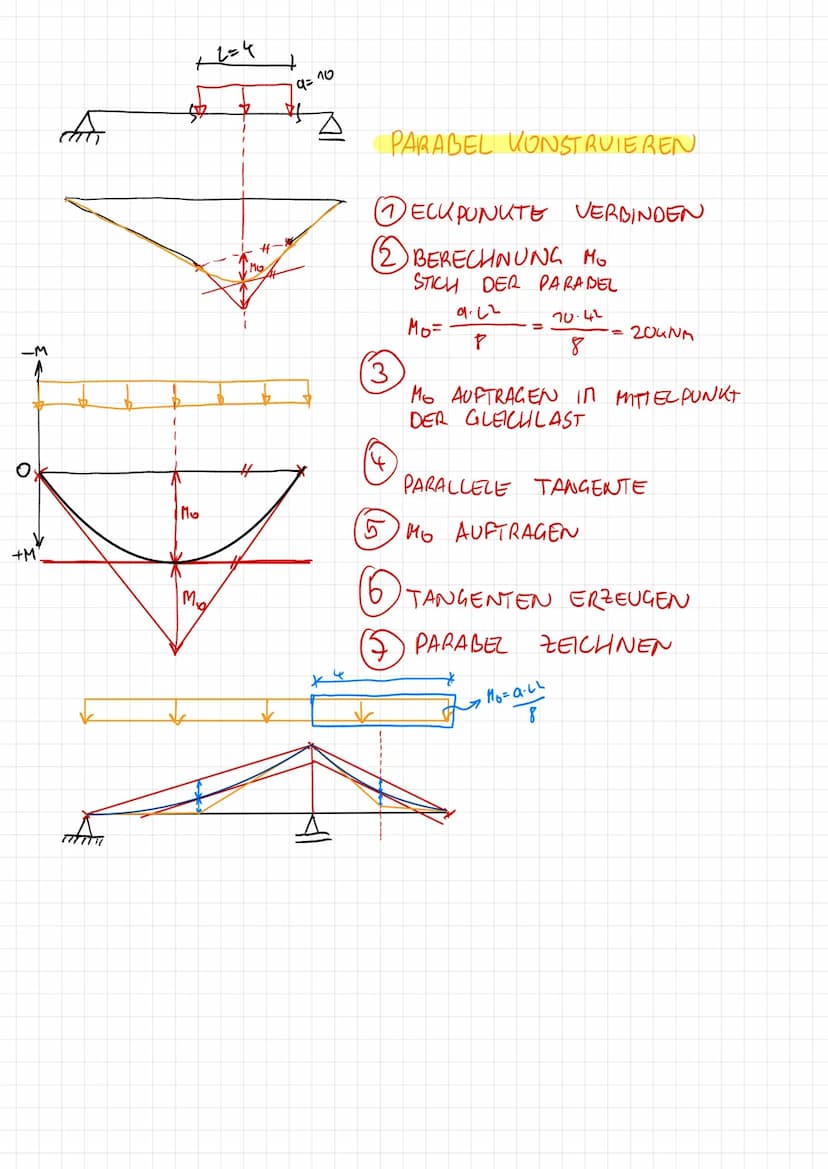 L=4
q=10
PARABEL KONSTRUIEREN
1 ECKPUNKTE VERBINDEN
2 BERECHNUNG M0
STICH DER PARABEL
M0= q·L² / 8 = 10·4² / 8 = 20kNm
M0
-M
3
M0 AUFTRAGEN IN MITTELPUNKT
DER GLEICHLAST
0
4
PARALLELE TANGENTE
M0
5 M0 AUFTRAGEN
+M
M0
6 TANGENTEN ERZEUGEN
7 PARABEL ZEICHNEN
4
M0= q·L² / 8